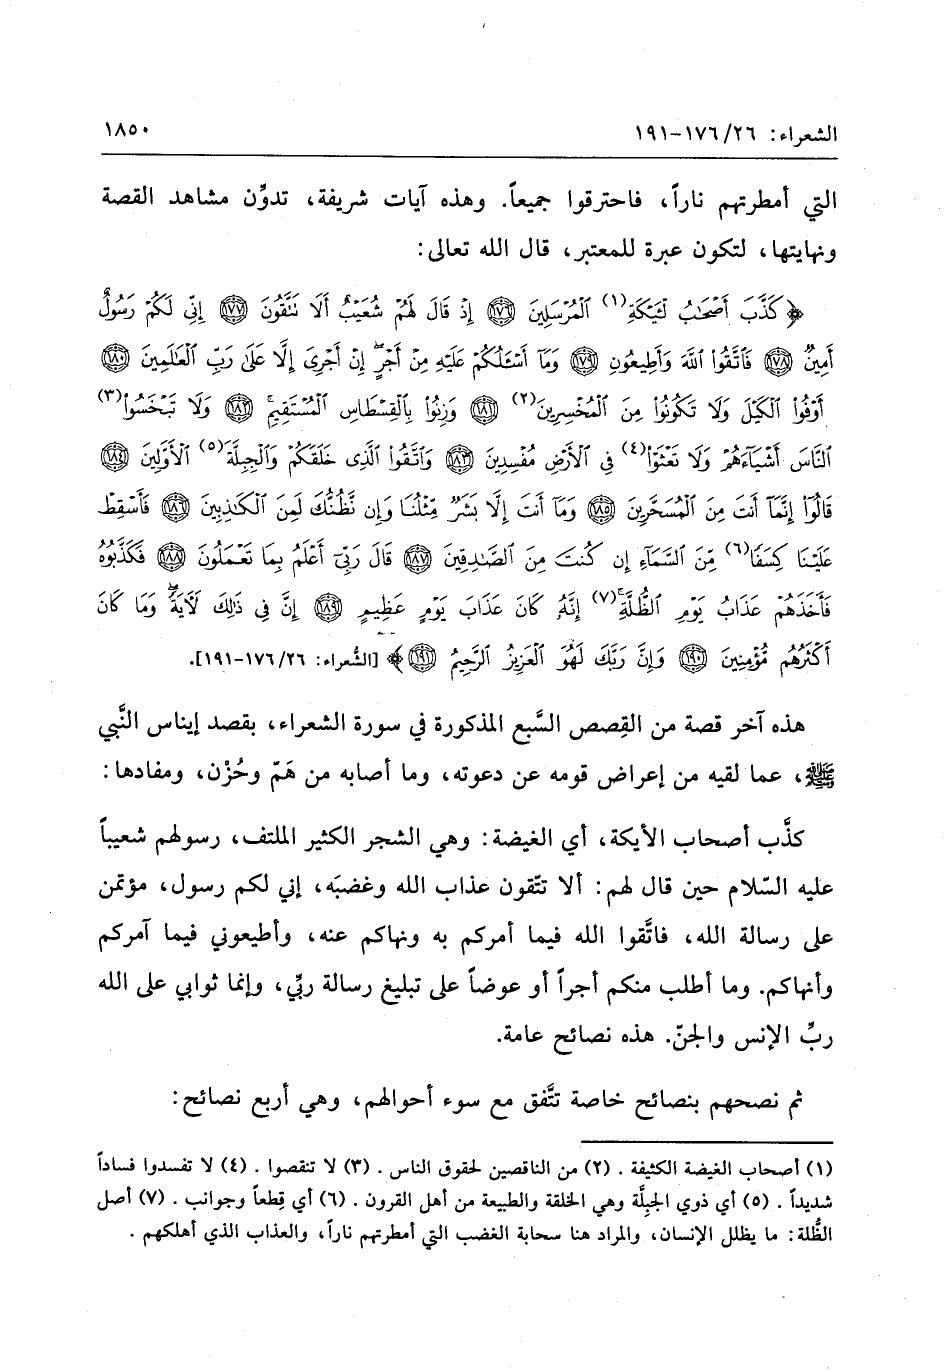 الشعراء: ٢٦/ ١٧٦-١٩١ ١٨٥٠
التي أمطرتهم ناراً، فاحترقوا جميعاً. وهذه آيات شريفة، تدوِّن مشاهد القصة
ونهايتها، لتكون عبرة للمعتبر، قال الله تعالى:
﴿كَذَّبَ أَصْحَٰبُ لْـَٔيْكَةِ(١) الْمُرْسَلِينَ ۝١٧٦ إِذْ قَالَ لَهُمْ شُعَيْبٌ أَلَا تَتَّقُونَ ۝١٧٧ إِنِّي لَكُمْ رَسُولٌ
أَمِينٌ ۝١٧٨ فَاتَّقُوا اللَّهَ وَأَطِيعُونِ ۝١٧٩ وَمَا أَسْـَٔلُكُمْ عَلَيْهِ مِنْ أَجْرٍ إِنْ أَجْرِيَ إِلَّا عَلَىٰ رَبِّ الْعَٰلَمِينَ ۝١٨٠
أَوْفُوا الْكَيْلَ وَلَا تَكُونُوا مِنَ الْمُخْسِرِينَ(٢) ۝١٨١ وَزِنُوا بِالْقِسْطَاسِ الْمُسْتَقِيمِ ۝١٨٢ وَلَا تَبْخَسُوا(٣)
النَّاسَ أَشْيَآءَهُمْ وَلَا تَعْثَوْا(٤) فِي الْأَرْضِ مُفْسِدِينَ ۝١٨٣ وَاتَّقُوا الَّذِي خَلَقَكُمْ وَالْجِبِلَّةَ(٥) الْأَوَّلِينَ ۝١٨٤
قَالُوٓا إِنَّمَآ أَنتَ مِنَ الْمُسَحَّرِينَ ۝١٨٥ وَمَآ أَنتَ إِلَّا بَشَرٌ مِّثْلُنَا وَإِن نَّظُنُّكَ لَمِنَ الْكَٰذِبِينَ ۝١٨٦ فَأَسْقِطْ
عَلَيْنَا كِسَفًا(٦) مِّنَ السَّمَآءِ إِن كُنتَ مِنَ الصَّٰدِقِينَ ۝١٨٧ قَالَ رَبِّيٓ أَعْلَمُ بِمَا تَعْمَلُونَ ۝١٨٨ فَكَذَّبُوهُ
فَأَخَذَهُمْ عَذَابُ يَوْمِ الظُّلَّةِ(٧) إِنَّهُ كَانَ عَذَابَ يَوْمٍ عَظِيمٍ ۝١٨٩ إِنَّ فِي ذَٰلِكَ لَآيَةً وَمَا كَانَ
أَكْثَرُهُم مُّؤْمِنِينَ ۝١٩٠ وَإِنَّ رَبَّكَ لَهُوَ الْعَزِيزُ الرَّحِيمُ ۝١٩١﴾ [الشُّعراء: ٢٦/ ١٧٦-١٩١].
هذه آخر قصة من القِصص السَّبع المذكورة في سورة الشعراء، بقصد إيناس النَّبي
ﷺ، عما لقيه من إعراض قومه عن دعوته، وما أصابه من هَمّ وحُزْن، ومفادها:
كذَّب أصحاب الأيكة، أي الغيضة: وهي الشجر الكثير الملتف، رسولهم شعيباً
عليه السّلام حين قال لهم: ألا تتّقون عذاب الله وغضبَه، إني لكم رسول، مؤتمن
على رسالة الله، فاتَّقوا الله فيما أمركم به ونهاكم عنه، وأطيعوني فيما آمركم
وأنهاكم. وما أطلب منكم أجراً أو عوضاً على تبليغ رسالة ربِّي، وإنما ثوابي على الله
ربِّ الإنس والجنّ. هذه نصائح عامة.
ثم نصحهم بنصائح خاصة تتَّفق مع سوء أحوالهم، وهي أربع نصائح:
(١) أصحاب الغيضة الكثيفة . (٢) من الناقصين لحقوق الناس . (٣) لا تنقصوا . (٤) لا تفسدوا فساداً
شديداً . (٥) أي ذوي الجبِلَّة وهي الخلقة والطبيعة من أهل القرون . (٦) أي قِطعاً وجوانب . (٧) أصل
الظُّلة: ما يظلل الإنسان، والمراد هنا سحابة الغضب التي أمطرتهم ناراً، والعذاب الذي أهلكهم .